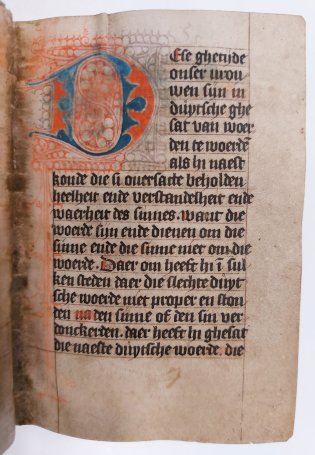 Dese ghetijde
onser urou
wen sijn in
duytsche ghe
sat van woer
den te woerdē
als hi naest
konde die si ouersatte beholden
heelheit ende verstandelheit ende
waerheit des sinnes. want die
woerde sijn ende dienen om die
sinne ende die sinne niet om die
woerde. Daer om heeft hi ī sul
ken steden daer die slechte duyt
sche woerde niet proper en ston
den na den sinne of den sin ver
donckerden. daer heeft hi ghesat
die naeste duytsche woerde. die